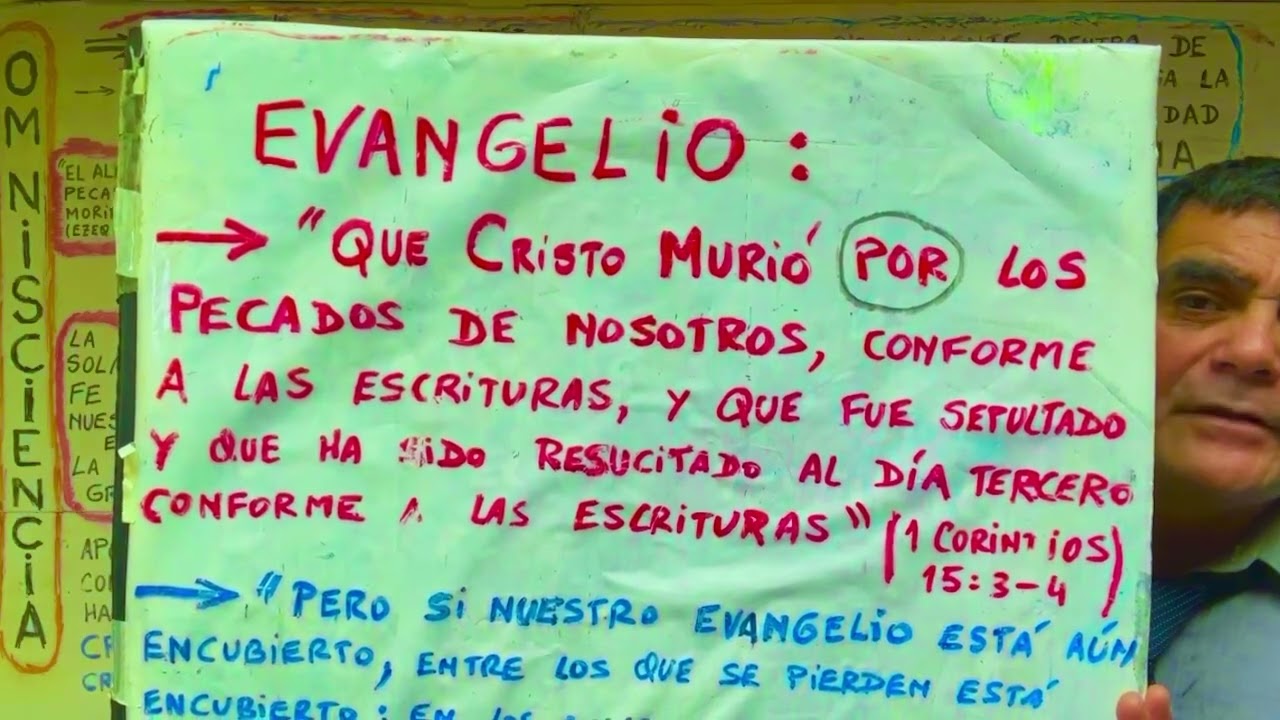 OMNiSCiENCiA
"EL AL
PECA
MORiR
(EZEQ
LA
SOLA
FE
NUES
E
LA
GR
APO
CON
HA
CR
CR
DENTRO DE
LA
DAD
A
EVANGELiO :
→ "QUE CRiSTO MURiÓ POR LOS
PECADOS DE NOSOTROS, CONFORME
A LAS ESCRiTURAS, Y QUE FUE SEPULTADO
Y QUE HA SiDO RESUCiTADO AL DÍA TERCERO
CONFORME A LAS ESCRiTURAS" (1 CORiNTiOS
15:3-4)
→ "PERO Si NUESTRO EVANGELiO ESTÁ AÚN
ENCUBiERTO, ENTRE LOS QUE SE PiERDEN ESTÁ
ENCUBiERTO; EN LOS